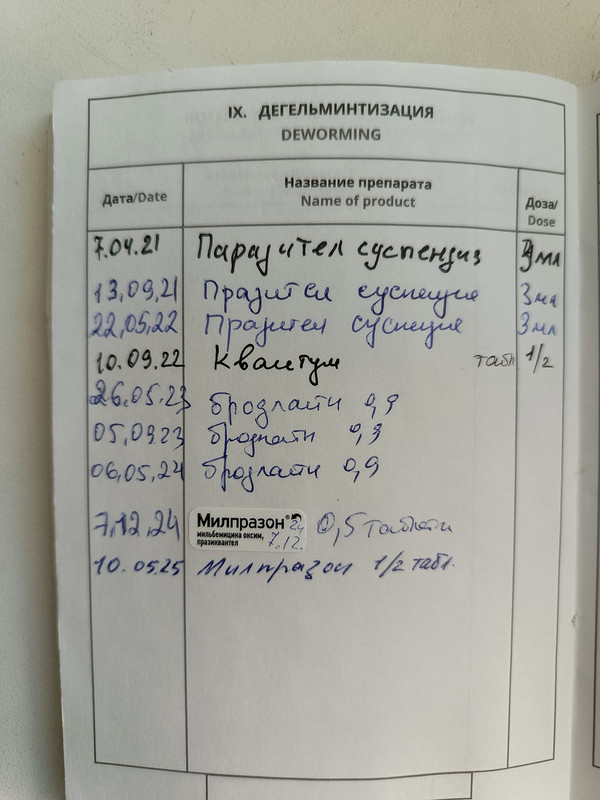 IX. ДЕГЕЛЬМИНТИЗАЦИЯ
DEWORMING
Дата/Date
Название препарата
Name of product
Доза/
Dose
7.04.21 Паразител суспензия 3 мл
13,09,21 Празител суспензия 3 мл
22,05,22 Празител суспензия 3 мл
10.09.22 Квантум табл 1/2
26.05.23 бродлайн 0,9
05,09,23 бродлайн 0,9
06,05,24 бродлайн 0,9
7,12,24 Милпразон® 0,5 таблетки
мильбемицина оксим,
празиквантел 7.12.
10.05.25 Милпразон 1/2 табл.